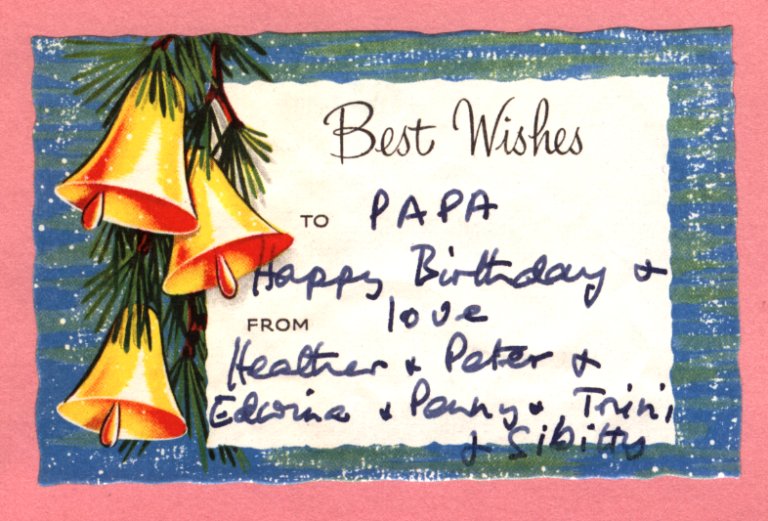 Best Wishes
TO PAPA
Happy Birthday &
love
FROM
Heather & Peter &
Edwina & Penny & Trini
& Sibitty